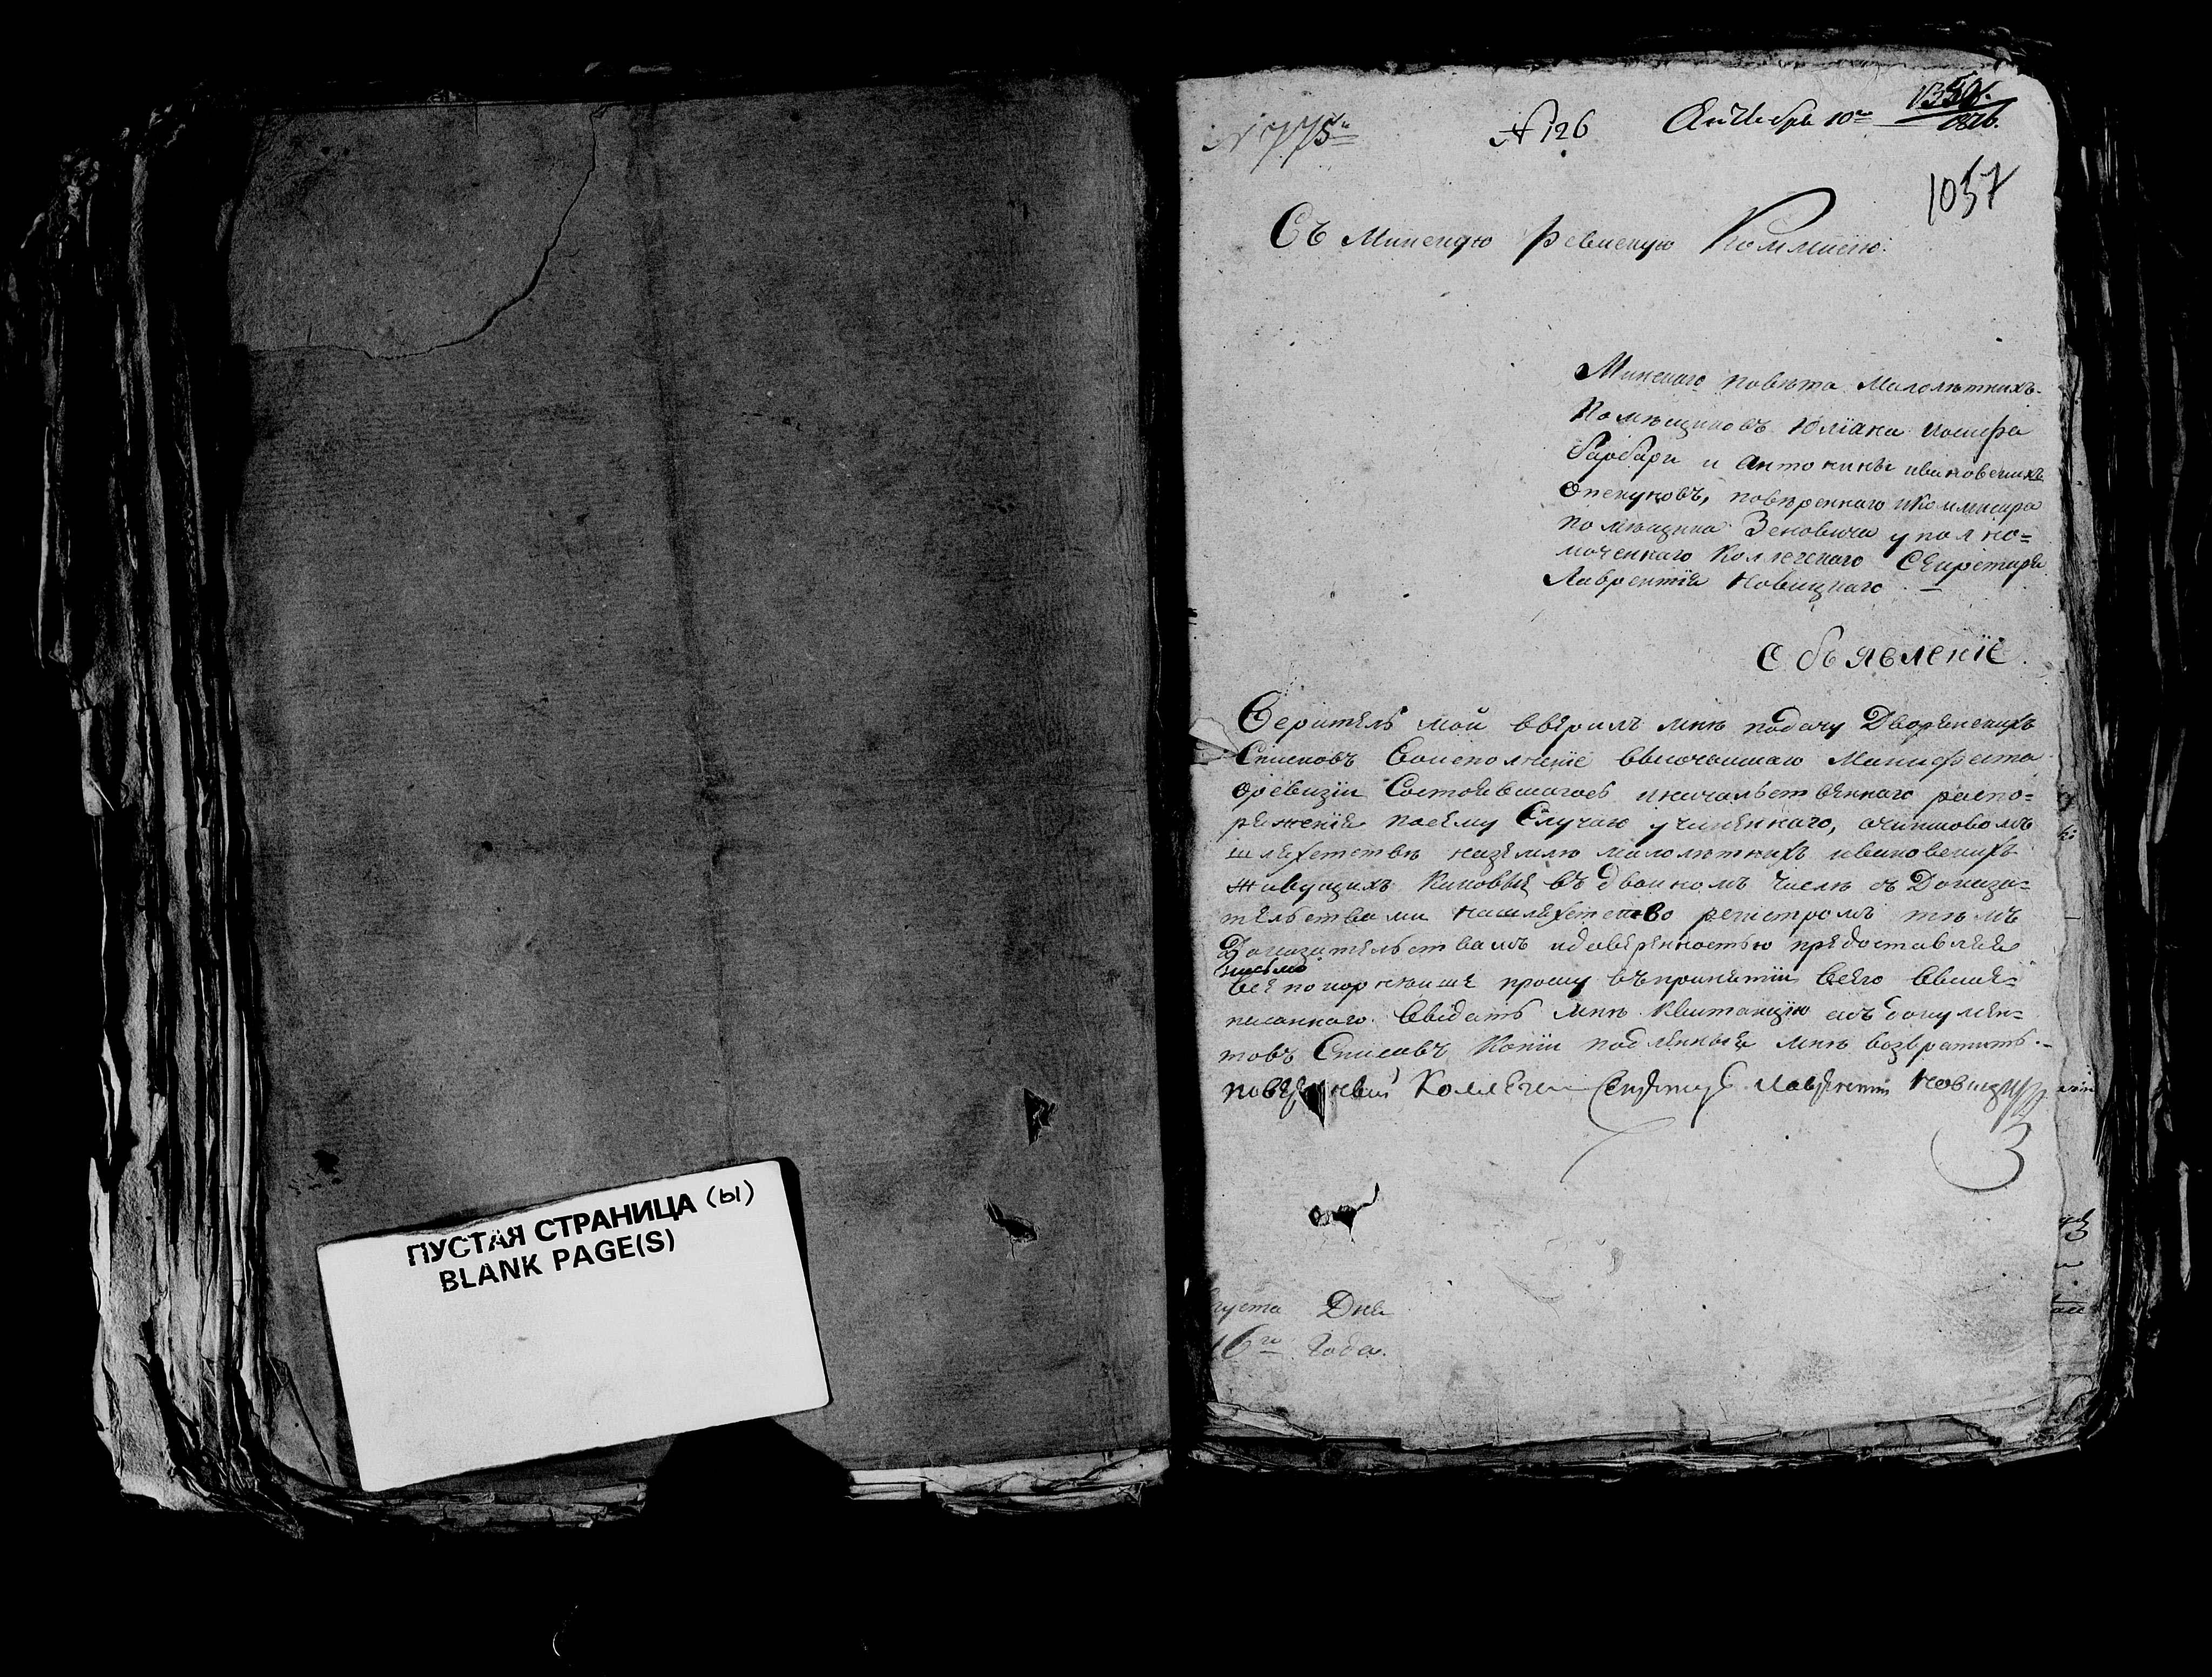 ПУСТАЯ СТРАНИЦА (ы)
BLANK PAGE(S)
N 775
N 126
10го
1816.
1057
Въ Минскую Ревискую Коммисию:
Минскаго повѣта Малолѣтнихъ
Помѣщиковъ Юлiана Иосифа
Барбары и Антонины ивановскихъ
Опекуновъ, повѣреннаго и Коммисара
помѣщика Зеновича уполно=
моченнаго Коллегскаго Секретаря
Лаврентiя Новицкаго. —
Объявленiе.
Веритель мой ввѣрилъ мнѣ подачу Дворянскихъ
Списковъ Воисполненiе высочайшаго Манифеста
оревизiи Состоявшагось иначальственнаго распо=
ряженiя посему Случаю учиненнаго, очиншовомъ
шляхетствѣ наземлѣ малолѣтнихъ ивановскихъ
живущихъ въ двойномъ числѣ съ Доказа=
тельствами нашляхетство регистромъ тѣмъ
Доказательствамъ идовѣренностью предоставляя
всепокорнѣйше прошу въпринятiи всего Выше=
писаннаго Выдать мнѣ Квитанцiю асъ докумен=
товъ Списавъ Копiи подлинныя мнѣ возвратить.—
повѣренный Коллегскiй Секретарь Лаврентiй Новицкiй
густа Дня
16го Года.